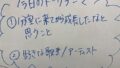 今日のトークテーマ
①分室に来て成長したなと
思うこと
②好きな歌手/アーティスト